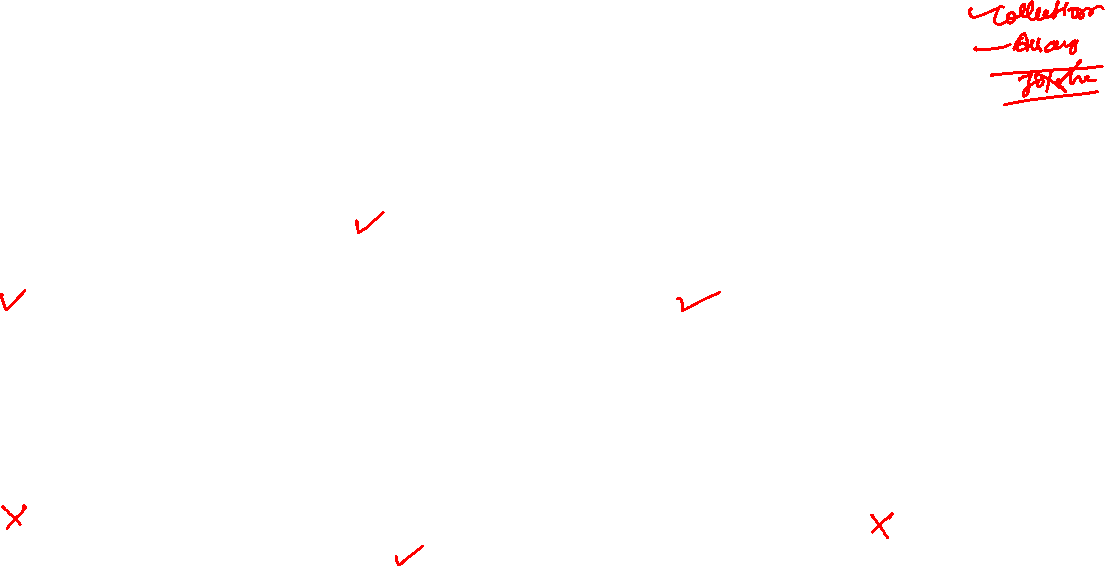 Collection
Array